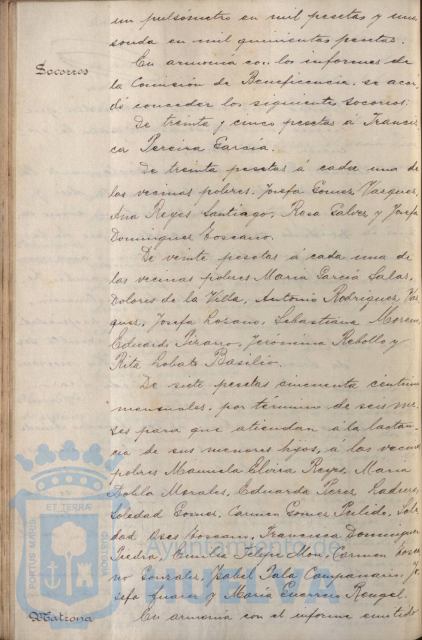 un pulsómetro en mil pesetas y una
sonda en mil quinientas pesetas.
Socorros
En armonía con los informes de
la Comisión de Beneficencia, se acor
dó conceder los siguientes socorros:
De treinta y cinco pesetas á Francis
ca Pereira García.
De treinta pesetas á cada una de
las vecinas pobres, Josefa Gomez Vazquez,
Ana Reyes Santiago, Rosa Galvez y Josefa
Dominguez Toscano.
De veinte pesetas á cada una de
las vecinas pobres María García Salas,
Dolores de la Villa, Antonio Rodriguez Vaz
quez, Josefa Lozano, Sebastiana Moreno,
Pizarro, Jeronima Rebollo y
Rita Lobato Basilio.
De siete pesetas cincuenta centims
mensuales, por término de seis me-
ses para que atiendan á la lactan-
cia de sus menores hijos, á las vecinas
pobres Manuela Reyes, María
Morales, Eduarda Perez
Soledad Gomez, Carmen Gomez Pulido, Sole
dad Toscano, Francisca Dominguez
Piedra, Emilia Felipe Mon, Carmen Loza
no Gonzalez, Isabel Campanario, Jo
sefa Juarez y María Guerrero Rengel.
Matrona
En armonía con el informe emitido
PORTUS MARIS
ET TERRÆ
CUSTODIA
Ayuntamiento de
HUELVA